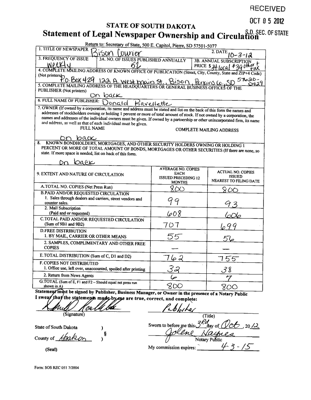 RECEIVED
OCT 05 2012
S.D. SEC. OF STATE
STATE OF SOUTH DAKOTA
Statement of Legal Newspaper Ownership and Circulation
Return to: Secretary of State, 500 E. Capitol, Pierre, SD 57501-5077
1. TITLE OF NEWSPAPER Bison Courier
2. DATE 10-3-12
3. FREQUENCY OF ISSUE weekly
3A. NO. OF ISSUES PUBLISHED ANNUALLY 52
3B. ANNUAL SUBSCRIPTION PRICE
4. COMPLETE MAILING ADDRESS OF KNOWN OFFICE OF PUBLICATION (Street, City, County, State and ZIP+4 Code) (Not printers)
PO Box 429 122 A West Main St., Bison, Perkins Co. SD 57620-
5. COMPLETE MAILING ADDRESS OF THE HEADQUARTERS OR GENERAL BUSINESS OFFICE OF THE PUBLISHER (Not printer)
on back
6. FULL NAME OF PUBLISHER: Donald Ravellette
7. OWNER (If owned by a corporation, its name and address must be stated and also on the back of this form the names and
addresses of stockholders owning or holding 1 percent or more of total amount of stock. If not owned by a corporation, the
names and addresses of the individual owners must be given. If owned by a partnership or other unincorporated firm, its name
and address, as well as that of each individual must be given.
FULL NAME
COMPLETE MAILING ADDRESS
on back
8. KNOWN BONDHOLDERS, MORTGAGES, AND OTHER SECURITY HOLDERS OWNING OR HOLDING 1
PERCENT OR MORE OF TOTAL AMOUNT OF BONDS, MORTGAGES OR OTHER SECURITIES (If there are none, so
state. If more space is needed, list on back of this form.
on back
9. EXTENT AND NATURE OF CIRCULATION
AVERAGE NO. COPIES EACH ISSUED PRECEDING 12 MONTHS
ACTUAL NO. COPIES ISSUED NEAREST TO FILING DATE
A. TOTAL NO. COPIES (Net Press Run) 800 800
B. PAID AND/OR REQUESTED CIRCULATION
1. Sales through dealers and carriers, street vendors and counter sales. 99 93
2. Mail Subscription (Paid and/or requested) 608 606
C. TOTAL PAID AND/OR REQUESTED CIRCULATION (Sum of 9B1 and 9B2) 707 699
D. FREE DISTRIBUTION
1. BY MAIL, CARRIER OR OTHER MEANS 55 56
2. SAMPLES, COMPLIMENTARY AND OTHER FREE COPIES
E. TOTAL DISTRIBUTION (Sum of C, D1 and D2) 762 755
F. COPIES NOT DISTRIBUTED
1. Office use, left over, unaccounted, spoiled after printing 32 38
2. Return from News Agents 6 7
G. TOTAL (Sum of E, F1 and F2 – Should equal net press run shown in A) 800 800
Statement must be signed by Publisher, Business Manager, or Owner in the presence of a Notary Public
I swear that the statements made by me are true, correct, and complete:
(Signature)
Publisher
(Title)
State of South Dakota )
County of Haakon )
Sworn to before me this 3rd day of Oct, 2012
Notary Public
(Seal)
My commission expires: 4-3-15
Form: SOS REC 051 7/2004